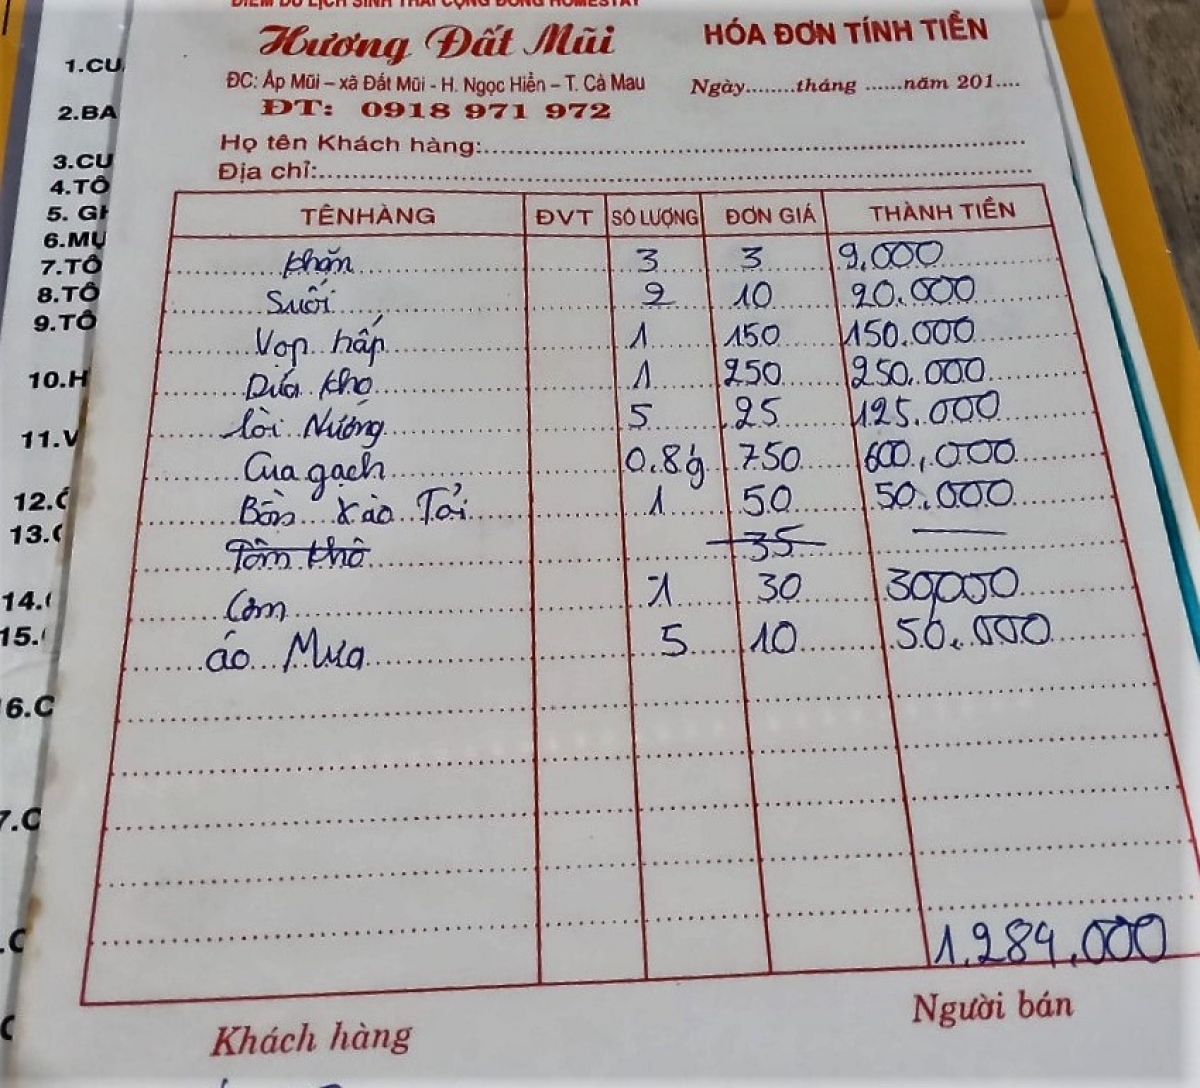 ĐIỂM DU LỊCH SINH THÁI CỘNG ĐỒNG HOMESTAY
Hương Đất Mũi
HÓA ĐƠN TÍNH TIỀN
ĐC: Ấp Mũi – xã Đất Mũi - H. Ngọc Hiển – T. Cà Mau
Ngày........tháng ......năm 201....
ĐT: 0918 971 972
Họ tên Khách hàng:
Địa chỉ:
TÊN HÀNG ĐVT SỐ LƯỢNG ĐƠN GIÁ THÀNH TIỀN
khăn 3 3 9.000
Suối 2 10 20.000
Vọp hấp 1 150 150.000
Dứa kho 1 250 250.000
lòi Nướng 5 25 125.000
Cua gạch 0.8 750 600.000
Bồn xào Tỏi 1 50 50.000
Tôm khô 35
Cơm 1 30 30,000
áo Mưa 5 10 50.000
1.284.000
Khách hàng
Người bán
1.CU
2.BA
3.CU
4.TÔ
5. GH
6.MỰ
7.TÔ
8.TÔ
9.TÔ
10.H
11.V
12.
13.
14.
15.
6.C
7.C
.C